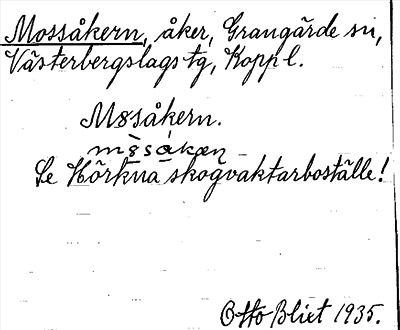 Mossåkern, åker, Grangärde sn,
Västerbergslags tg, Koppl.
M8såkern.
Se Hörkna skogvaktarboställe!
Otto Blixt 1935.